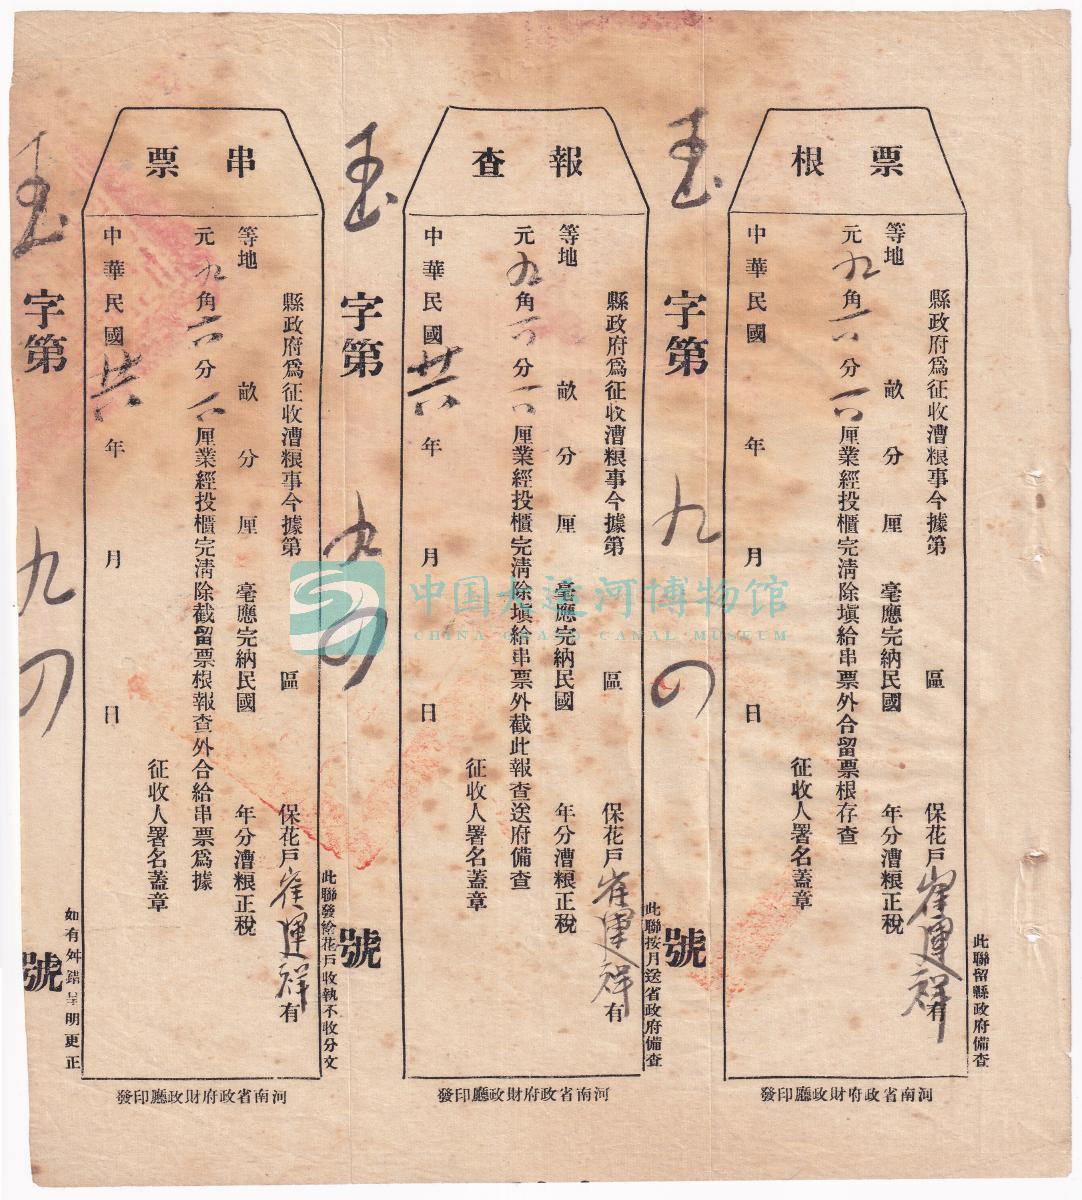 票根
縣政府爲征收漕粮事今據第 區 保花戶崔運祥有
等地 畝 分 厘 毫應完納民國 年分漕粮正稅
元九角六分六厘業經投櫃完清除塡給串票外合留票根存查
征收人署名蓋章
中華民國 年 月 日
此聯留縣政府備查
河南省政府財政廳印發
字第九 號
報查
縣政府爲征收漕粮事今據第 區 保花戶崔運祥有
等地 畝 分 厘 毫應完納民國 年分漕粮正稅
元九角六分六厘業經投櫃完清除塡給串票外截此報查送府備查
征收人署名蓋章
中華民國廿六年 月 日
此聯按月送省政府備查
河南省政府財政廳印發
字第九 號
串票
縣政府爲征收漕粮事今據第 區 保花戶崔運祥有
等地 畝 分 厘 毫應完納民國 年分漕粮正稅
元九角六分六厘業經投櫃完清除截留票根報查外合給串票爲據
征收人署名蓋章
中華民國廿六年 月 日
此聯發給花戶收執不收分文
河南省政府財政廳印發
如有舛錯呈明更正
字第九 號
中国大运河博物馆
CHINA GRAND CANAL MUSEUM